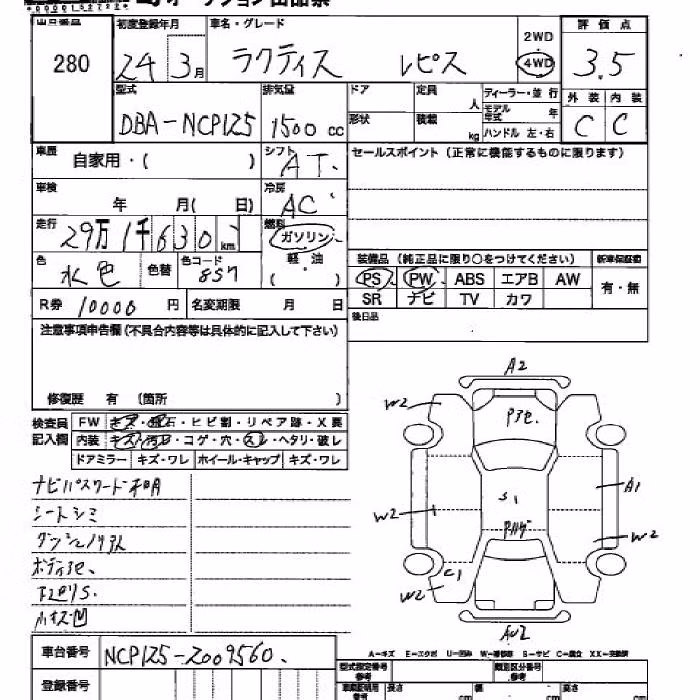 オークション出品票
出品番号 初度登録年月 車名・グレード 2WD 評価点
280 24年3月 ラクティス レピス 4WD 3.5
型式 排気量 ドア 定員 人 ディーラー・並行 外装 内装
DBA-NCP125 1500cc 形状 積載 kg モデル年式 年 ハンドル 左・右 C C
車歴 自家用・( ) シフト AT セールスポイント(正常に機能するものに限ります)
車検 年 月( 日) 冷房 AC
走行 29万1千630km 燃料 ガソリン
色 水色 色替 色コード 857 軽油 ( )
装備品(純正品に限り○をつけてください) 新車保証書
PS PW ABS エアB AW 有・無
SR ナビ TV カワ
R券 10000円 名変期限 月 日 後日品
注意事項申告欄(不具合内容等は具体的に記入して下さい)
修復歴 有 (箇所 )
検査員記入欄 FW キズ・飛石・ヒビ割・リペア跡・X要
内装 キズ・汚れ・コゲ・穴・スレ・ヘタリ・破レ
ドアミラー キズ・ワレ ホイール・キャップ キズ・ワレ
ナビパスワード不明
シートシミ
ダッシュノリ跡
ボディアセ、
下廻りS.
小キズ凹
A2
W2
Pアセ.
S1
A1
W2
W2
Pハゲ
C1
W2
AU2
A-キズ E-エクボ U-凹み W-補修跡 S-サビ C-腐食 XX-交換済
車台番号 NCP125-2009560.
登録番号
型式指定番号 類別区分番号
参考 参考
車庫証明用 参考 長さ cm 幅 cm 高さ cm